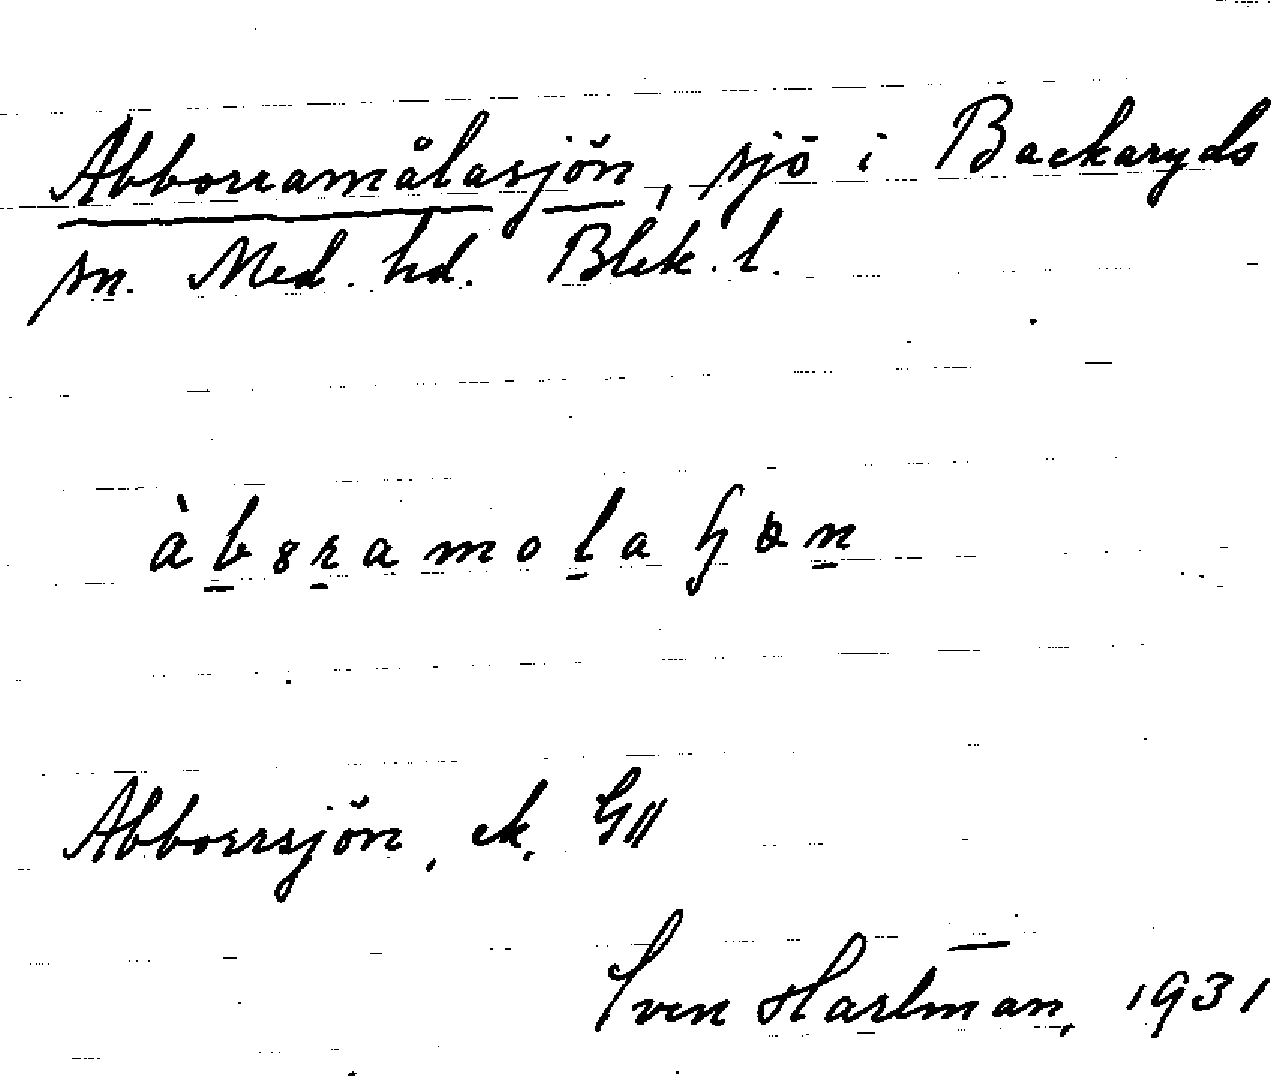 Abborramålasjön, sjö i Backaryds
sn. Med. hd. Blek. l.
àbɜramolaɧɵn
Abborrsjön, ek. GII
Sven Hartman, 1931